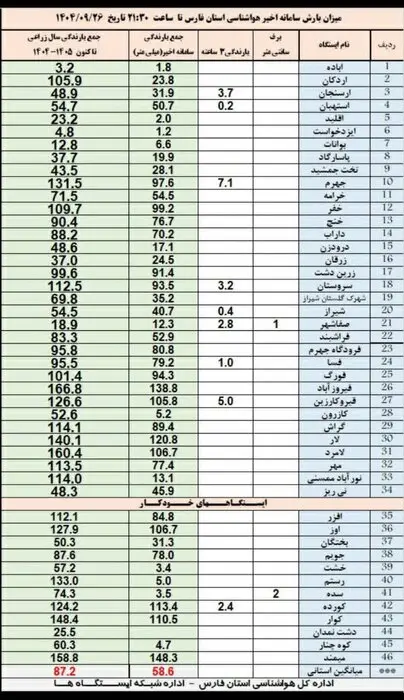 میزان بارش سامانه اخیر هواشناسی استان فارس تا ساعت ۲۱:۳۰ تاریخ ۱۴۰۴/۰۹/۲۶
ردیف نام ایستگاه برف سانتی متر بارندگی ۳ ساعته جمع بارندگی سامانه اخیر(میلی متر) جمع بارندگی سال زراعی تا کنون ۱۴۰۵-۱۴۰۴
۱ آباده 1.8 3.2
۲ اردکان 23.8 105.9
۳ ارسنجان 3.7 31.9 48.9
۴ استهبان 0.2 50.7 54.7
۵ اقلید 2.0 23.2
۶ ایزدخواست 1.2 4.8
۷ بوانات 6.6 12.8
۸ پاسارگاد 19.9 37.7
۹ تخت جمشید 28.1 43.5
۱۰ جهرم 7.1 97.6 131.5
۱۱ خرامه 54.5 71.5
۱۲ خفر 99.2 109.7
۱۳ خنج 76.7 90.4
۱۴ داراب 70.2 88.2
۱۵ درودزن 17.1 48.6
۱۶ زرقان 24.5 37.0
۱۷ زرین دشت 91.4 99.6
۱۸ سروستان 3.2 93.5 112.5
۱۹ شهرک گلستان شیراز 35.2 69.8
۲۰ شیراز 0.4 40.7 54.5
۲۱ صفاشهر 1 2.8 12.3 18.9
۲۲ فراشبند 52.9 83.3
۲۳ فرودگاه جهرم 80.8 95.8
۲۴ فسا 1.0 79.2 95.5
۲۵ فورگ 94.3 101.4
۲۶ فیروزآباد 138.8 166.8
۲۷ قیروکارزین 5.0 105.8 126.6
۲۸ کازرون 5.2 52.6
۲۹ گراش 89.4 114.1
۳۰ لار 120.8 140.1
۳۱ لامرد 106.7 160.4
۳۲ مهر 77.4 113.5
۳۳ نورآباد ممسنی 13.1 114.0
۳۴ نی ریز 45.9 48.3
ایستگاههای خودکار
۳۵ افزر 84.8 112.1
۳۶ اوز 106.7 127.9
۳۷ بختگان 31.3 50.3
۳۸ جویم 78.0 87.6
۳۹ خشت 3.4 57.2
۴۰ رستم 5.0 133.0
۴۱ سده 2 3.5 74.3
۴۲ کورده 2.4 113.4 124.2
۴۳ کوار 110.5 148.4
۴۴ دشت نمدان 25.5
۴۵ کوه سبز 4.7 60.3
۴۶ میمند 148.3 158.8
*** میانگین استانی 58.6 87.2
اداره کل هواشناسی استان فارس - اداره شبکه ایستگاه ها